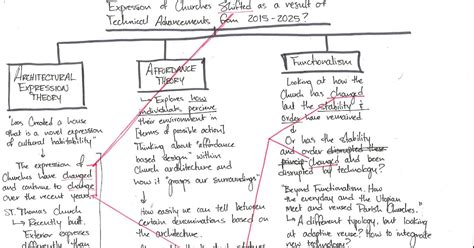 Expression of Churches Shifted as a result of
Technical Advancements from 2015-2025?
ARCHITECTURAL
EXPRESSION
THEORY
"Los Created a house
that is a novel expression
of cultural habitability"
↳ The expression of
Churches have changed
and continue to change
over the recent years.
ST. Thomas Church
↳ Recently built.
Exterior expresses
differently than
AFFORDANCE
THEORY
↳ Explores how
individuals perceive
their environment in
[terms of possible action]
Thinking about "affordance
based design" within
Church architecture and
how it "grasps our surroundings"
↳ How easily we can tell between
certain denominations based on
the architecture.
Functionalism
Looking at how the
Church has changed
but the stability &
order have remained
↳ Or has the stability
and order disrupted these
changed and been
disrupted by technology?
"Beyond Functionalism. How
the everyday and the Utopian
Meet and revised Parish Churches".
↳ A different typology, but looking
at adaptive reuse? How to integrate
new technology?